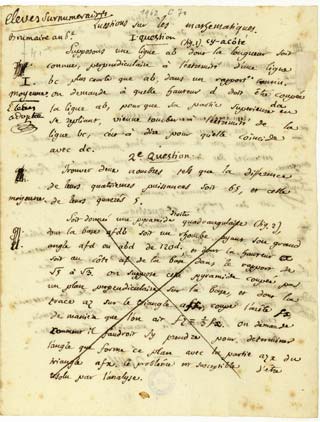 Eleves Surnumeraires
1942 E 70
questions sur les mathematiques.
Brumaire an 6e
1e question (fig. 1) cy-acôté
Supposons une ligne ab dont la longueur soit
connue, perpendiculaire à l'extrémité d'une ligne
bc plus courte que ab, dans un rapport connu,
moyenne, on demande à quelle hauteur d doit être coupée
la ligne ab, pour que sa partie superieure da
adoptée se repliant, vienne toucher à l'extremité de la
ligne bc, c'est à dire pour qu'elle coincide
avec dc.
2e Question
Trouver deux nombres tels que la difference
de leurs quatriemes puissances soit 65, et celle
moyenne de leurs quarrés 5.
Soit donnée une pyramide droite quadrangulaire (fig. 2)
dont la base afdb soit un rhombe ayant son grand
angle afd ou abd de 120d. et dont la hauteur
soit au côté af de la base dans le rapport de
√5 à √2. on suppose cette pyramide coupée par
un plan perpendiculaire sur la base et dont la
trace az sur le triangle coupe l'arête fx
de maniere que l'on ait fz = fx. on demande
comment il faudroit s'y prendre pour determiner
l'angle que forme ce plan avec la partie azx du
triangle afx. le problême est susceptible d'etre
résolu par l'analyse.